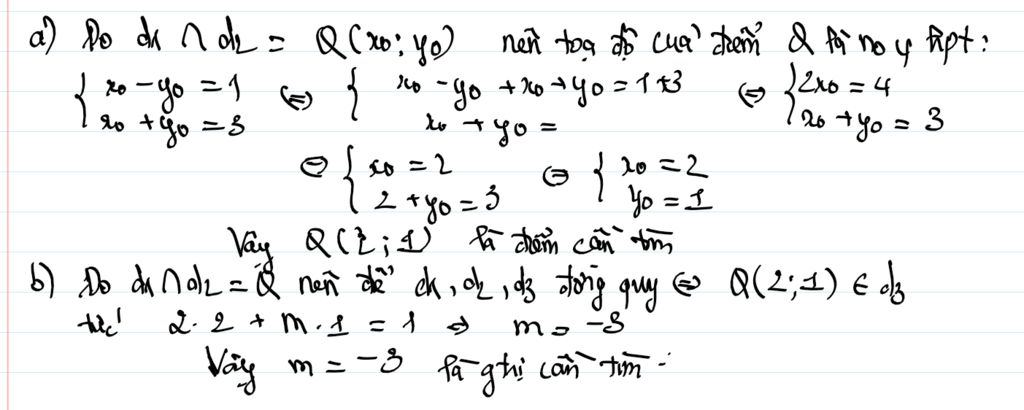 a) Do d1 ∩ d2 = Q(x0; y0) nên toạ độ của điểm Q là no of hpt:
{ x0 - y0 = 1 ⇔ { x0 - y0 + x0 + y0 = 1+3 ⇔ { 2x0 = 4
x0 + y0 = 3 x0 + y0 = x0 + y0 = 3
⇔ { x0 = 2 ⇔ { x0 = 2
2 + y0 = 3 y0 = 1
Vậy Q(2; 1) là điểm cần tìm
b) Do d1 ∩ d2 = Q nên để d1, d2, d3 đồng quy ⇔ Q(2; 1) ∈ d3
tức 2.2 + m.1 = 1 ⇒ m = -3
Vậy m = -3 là gtrị cần tìm.